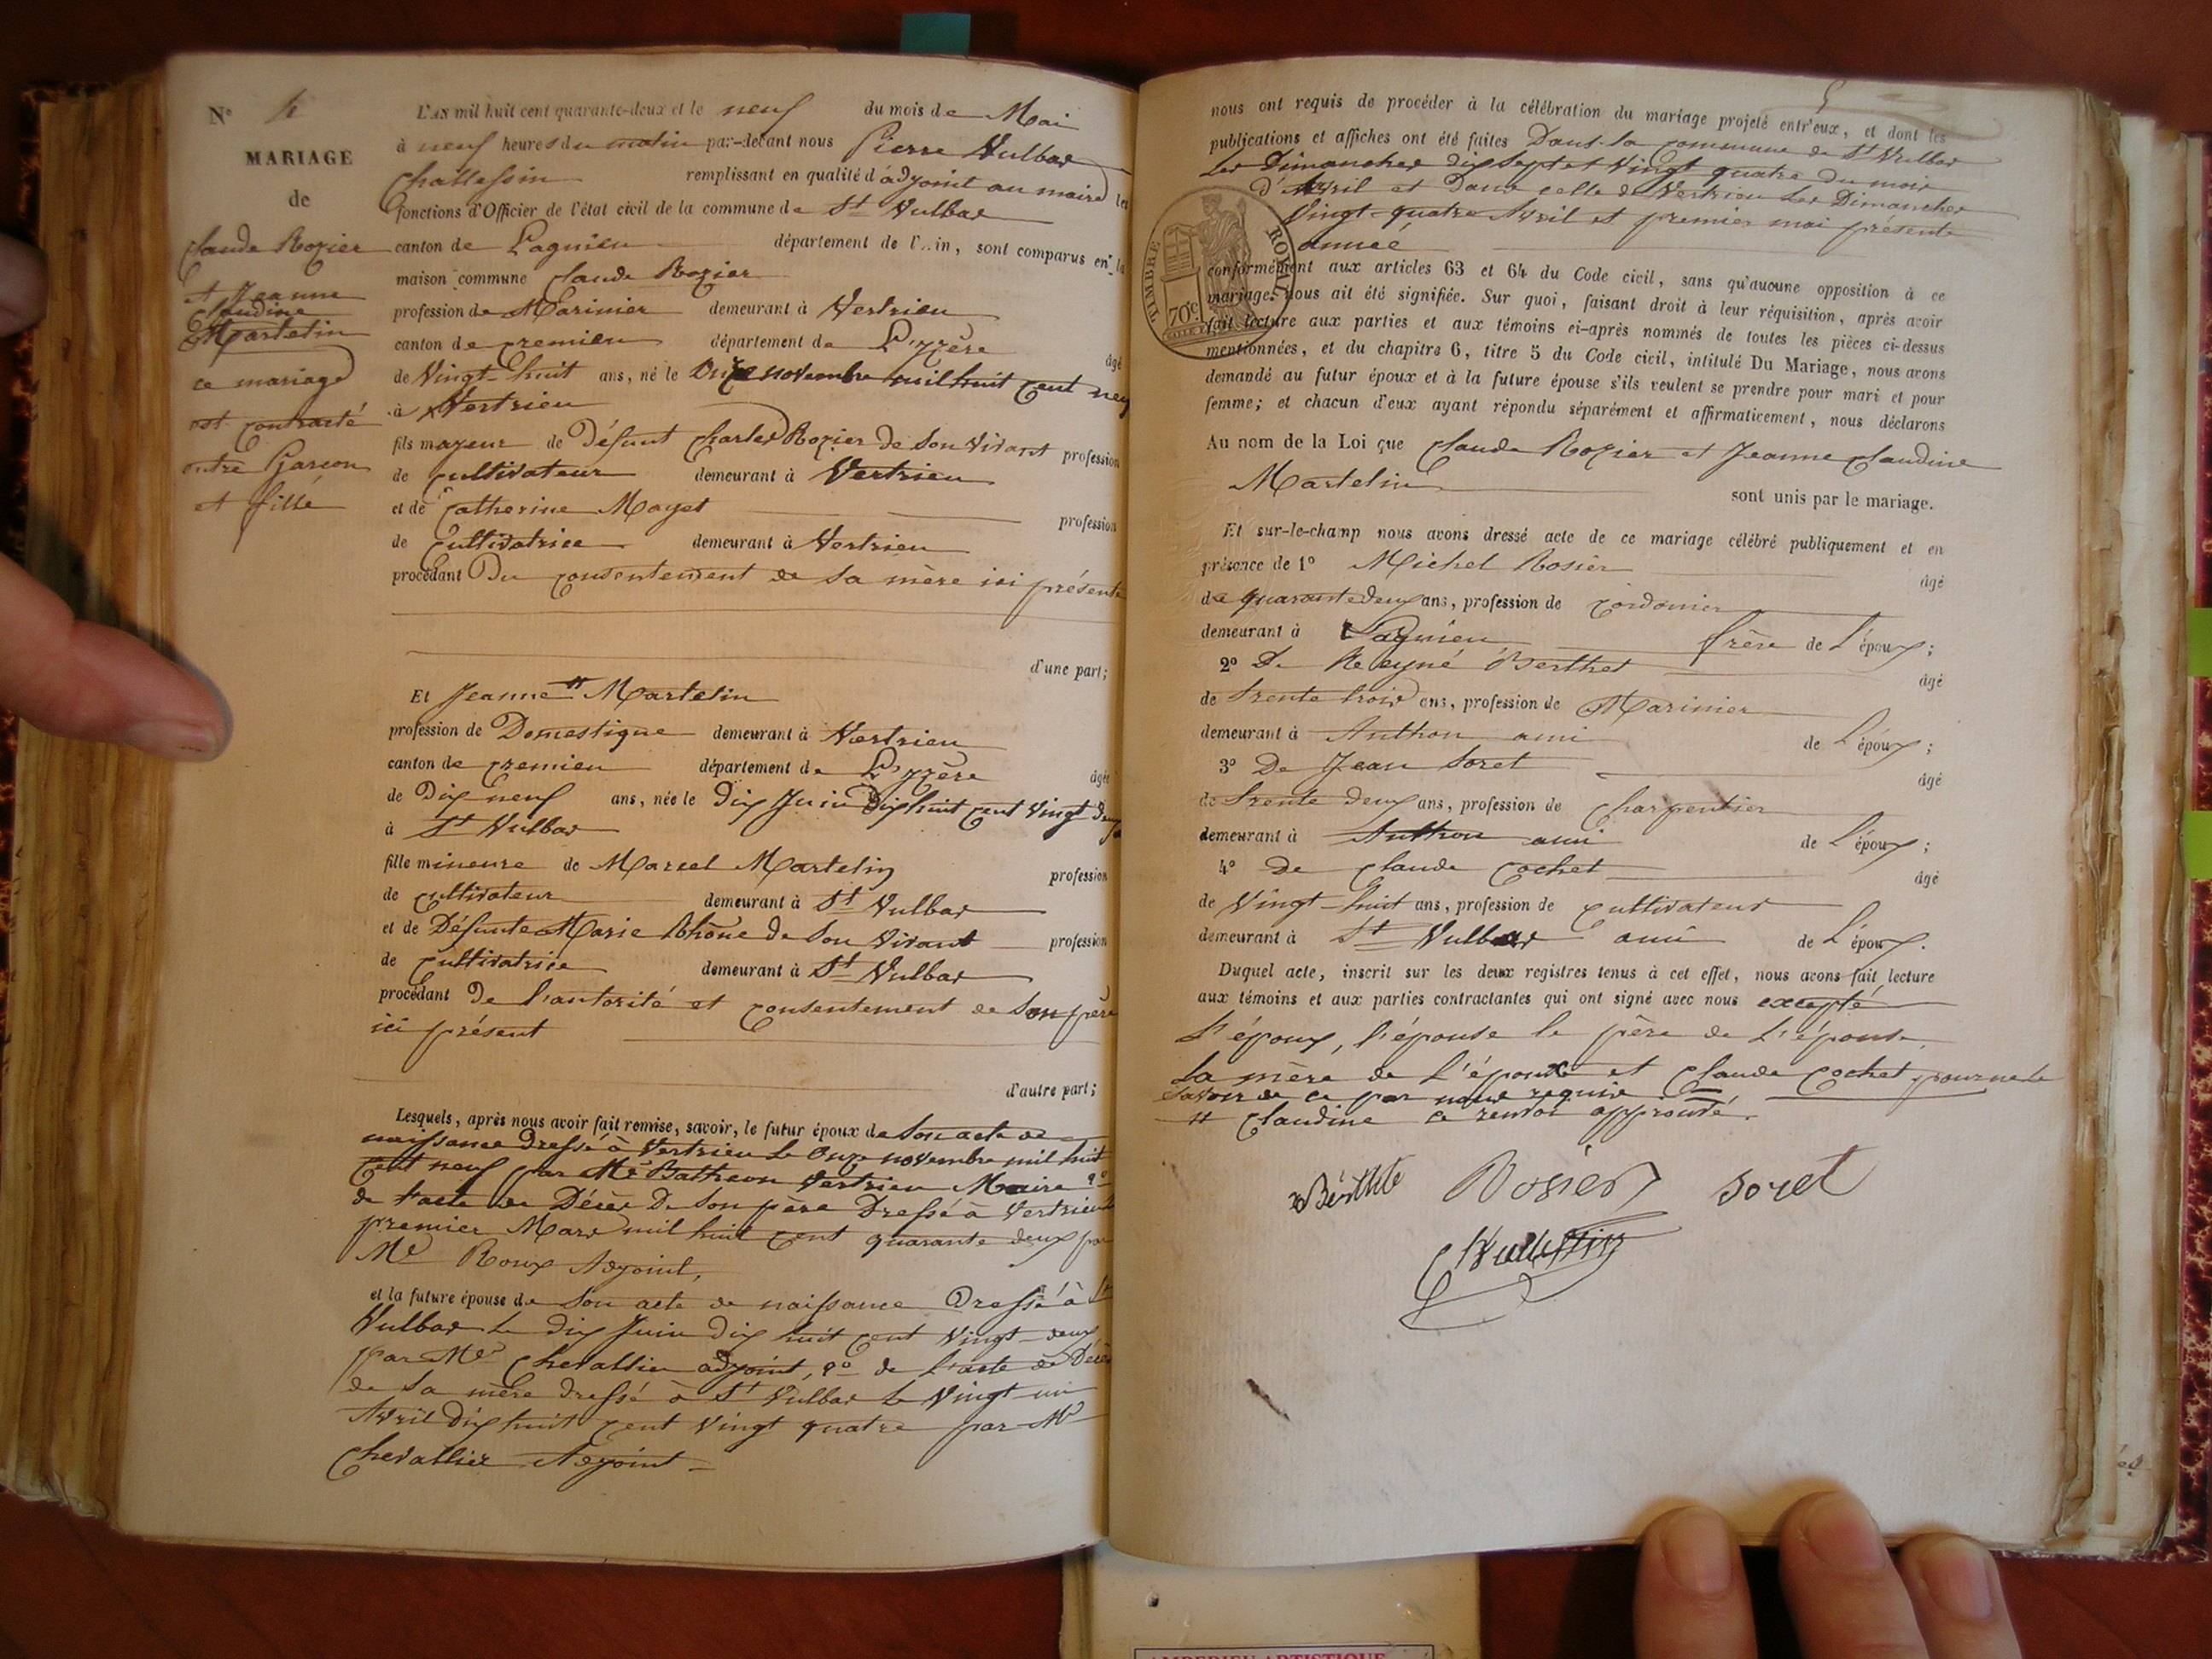 N° 4
MARIAGE
de
Claude Rozier
et Jeanne
Claudine
Martelin
ce mariage
est contracté
entre Garcon
et fille
L'AN mil huit cent quarante-deux et le neuf du mois de Mai
à neuf heures du matin par-devant nous Pierre Vulbas
Challessin remplissant en qualité d'adjoint au maire les
fonctions d'Officier de l'état civil de la commune de St Vulbas
canton de Lagnieu département de l'Ain, sont comparus en la
maison commune Claude Rozier
profession de Marinier demeurant à Vertrieu
canton de cremieu département de L'yzère âgé
de Vingt-huit ans, né le Onze novembre mil huit cent neuf
à Vertrieu
fils majeur de Défunt Charles Rozier de son vivant profession
de cultivateur demeurant à Vertrieu
et de Catherine Mayet profession
de Cultivatrice demeurant à Vertrieu
procédant Du consentement de sa mère ici présente
d'une part;
Et Jeanne # Martelin
profession de Domestique demeurant à Vertrieu
canton de cremieu département de L'yzère âgée
de Dix neuf ans, née le dix Juin dix huit cent vingt deux
à St Vulbas
fille mineure de Marcel Martelin profession
de cultivateur demeurant à St Vulbas
et de Défunte Marie Rhône de son vivant profession
de cultivatrice demeurant à St Vulbas
procédant De l'autorité et consentement de son père
ici présent
d'autre part;
Lesquels, après nous avoir fait remise, savoir, le futur époux de son acte de
naissance dressé à Vertrieu le onze novembre mil huit
cent neuf par Mr Vertrieu Maire 2°
de l'acte de Décès De son père Dressé à Vertrieu le
premier Mars mil huit cent quarante deux par
Mr Roux Adjoint,
et la future épouse de son acte de naissance Dressé à St
Vulbas le dix Juin dix huit cent vingt-deux
par Mr Chevallier adjoint, 2° de l'acte de Décès
de sa mère dressé à St Vulbas le Vingt-un
Avril dix huit cent vingt quatre par Mr
Chevallier Adjoint
5
nous ont requis de procéder à la célébration du mariage projeté entr'eux, et dont les
publications et affiches ont été faites Dans la commune de St Vulbas
les Dimanches dix sept et vingt quatre du mois
d'Avril et dans celle de Vertrieu les Dimanches
Vingt-quatre Avril et premier mai présente
année
TIMBRE ROYAL
70c.
conformément aux articles 63 et 64 du Code civil, sans qu'aucune opposition à ce
mariage nous ait été signifiée. Sur quoi, faisant droit à leur réquisition, après avoir
fait lecture aux parties et aux témoins ci-après nommés de toutes les pièces ci-dessus
mentionnées, et du chapitre 6, titre 5 du Code civil, intitulé Du Mariage, nous avons
demandé au futur époux et à la future épouse s'ils veulent se prendre pour mari et pour
femme; et chacun d'eux ayant répondu séparément et affirmativement, nous déclarons
Au nom de la Loi que Claude Rozier et Jeanne Claudine
Martelin sont unis par le mariage.
Et sur-le-champ nous avons dressé acte de ce mariage célébré publiquement et en
présence de 1° Michel Rosier âgé
de quarante deux ans, profession de cordonier
demeurant à Lagnieu frère de L'époux;
2° De Reyné Berthet âgé
de trente trois ans, profession de Marinier
demeurant à Anthon ami de L'époux;
3° De Jean Soret âgé
de trente deux ans, profession de charpentier
demeurant à Anthon ami de L'époux;
4° De Claude Cochet âgé
de Vingt-huit ans, profession de cultivateur
demeurant à St Vulbas ami de L'époux.
Duquel acte, inscrit sur les deux registres tenus à cet effet, nous avons fait lecture
aux témoins et aux parties contractantes qui ont signé avec nous excepté
L'époux, l'épouse le père de L'épouse,
La mère de L'époux et Claude Cochet pour ne le
savoir de ce par nous requis
# Claudine ce renvoi approuvé.
Rosier Soret
AMBERIEU ARTISTIQUE